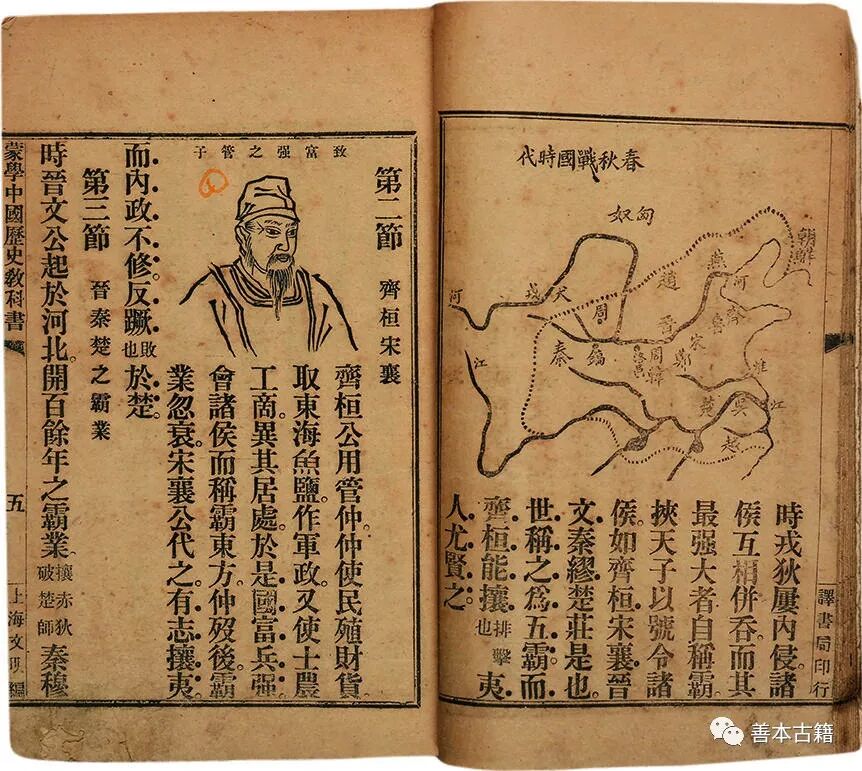 春秋戰國時代
匈奴
朝鮮
燕
趙
河
齊
魯
晉
宋
鄭
周韓
洛邑
周
鎬
犬戎
秦
河
江
淮
江
吳
楚
越
時戎狄屢內侵諸
侯互相併吞而其
最强大者自稱霸
挾天子以號令諸
侯如齊桓宋襄晉
文秦繆楚莊是也
世稱之爲五霸而
齊桓能攘排擊也夷
人尤賢之
譯書局印行
第二節 齊桓宋襄
致富强之管子
齊桓公用管仲仲使民殖財貨
取東海魚鹽作軍政又使士農
工商異其居處於是國富兵强
會諸侯而稱霸東方仲歿後霸
業忽衰宋襄公代之有志攘夷
而內政不修反蹶敗也於楚
第三節 晉秦楚之霸業
時晉文公起於河北開百餘年之霸業攘赤狄破楚師秦穆
蒙學中國歷史教科書
五
上海文明編
善本古籍